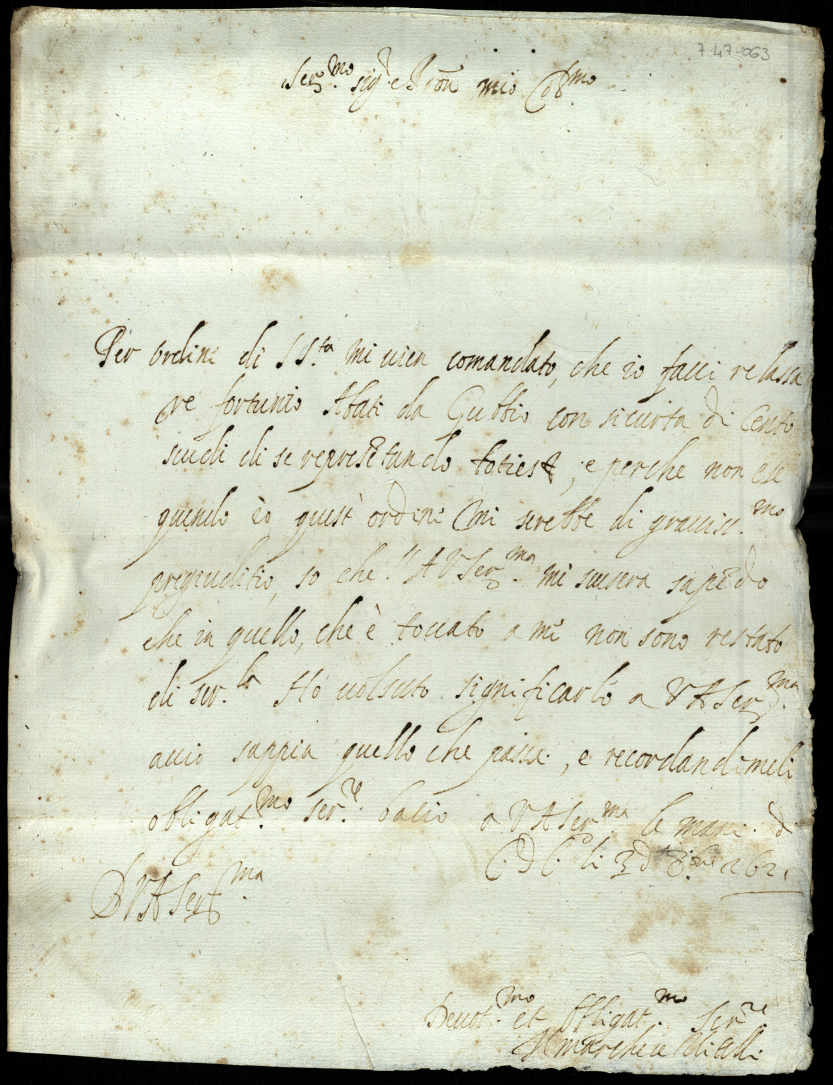 7-47-063
Ser.mo sig.r e Pron mio Col.mo
Per ordine di S S.ta mi vien comandato, che io facci relassa
re fortunio Abati da Gubbio con sicurta di Cento
scudi di se represẽtando toties, e perche non ese
quendo io quest' ordine mi serebbe di gravis.mo
pregiuditio, so che l'A V Ser.ma mi scusera sapẽdo
che in quello, che è toccato a mi non sono restato
di ser.la Hò volsuto significarlo a V A Ser.ma
acciò sappia quello che passa, e recordandomeli
obligat.mo ser.re bacio a V A Ser.ma le mani. d
C. di C.o li 3 d 8bre 1621
D V A Ser.ma
Devot.mo et obligat.mo Ser.re